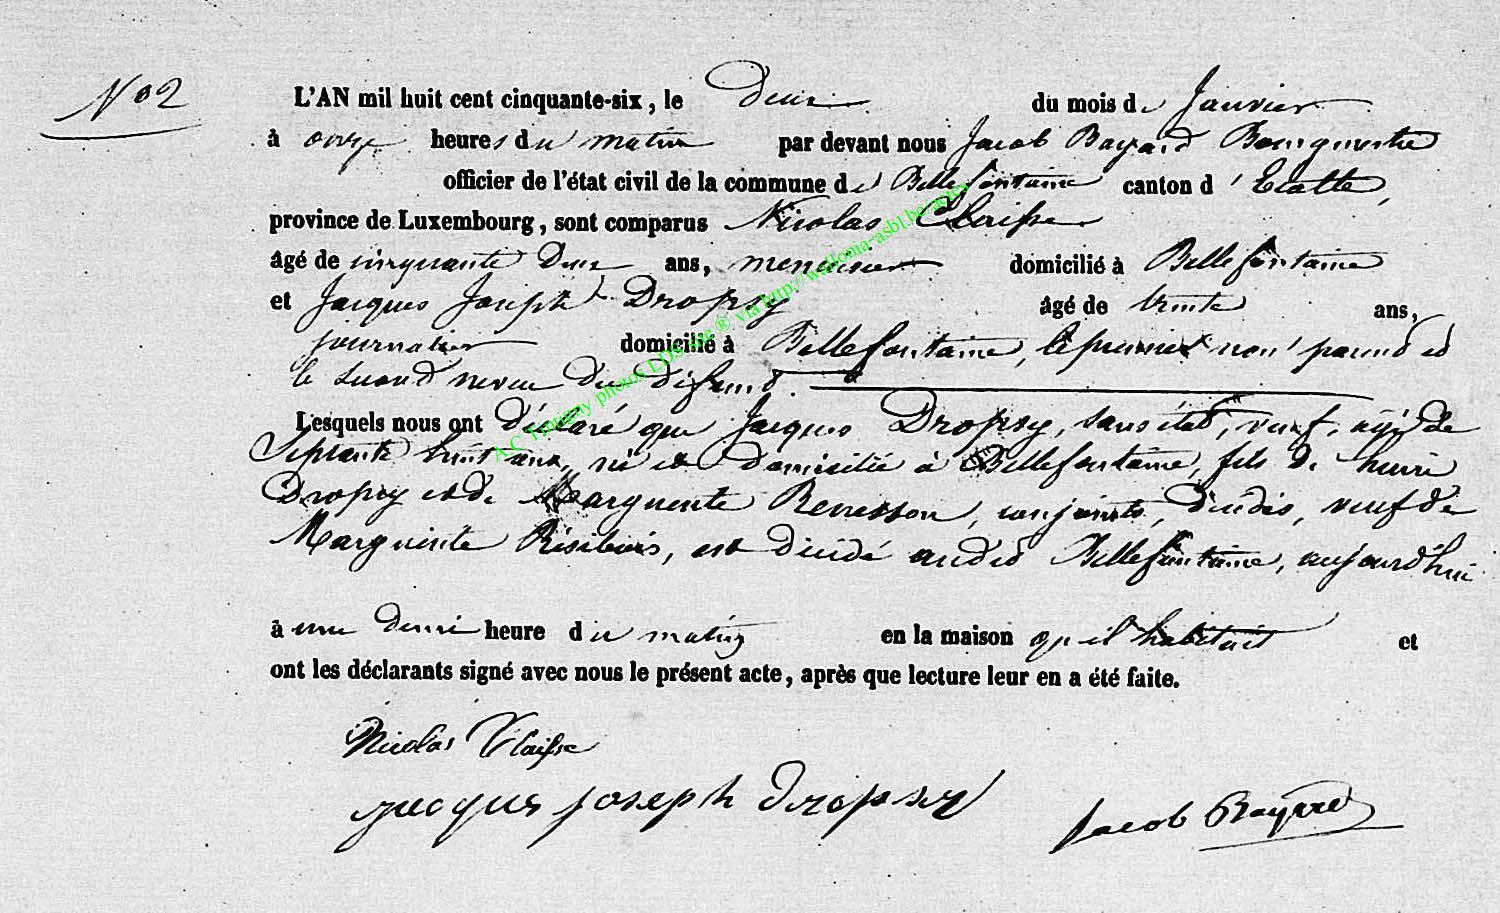 N° 2
L'AN mil huit cent cinquante-six, le Deux du mois de Janvier
à onze heures du matin par devant nous Jacob Bayard Bourgmestre
officier de l'état civil de la commune de Bellefontaine canton d'Etalle,
province de Luxembourg, sont comparus Nicolas Claisse
âgé de cinquante Deux ans, menuisier domicilié à Bellefontaine
et Jacques Joseph Dropsy âgé de trente ans,
journalier domicilié à Bellefontaine, le premier non parent et
le second neveu du défunt
Lesquels nous ont déclaré que Jacques Dropsy, sans état, veuf, agé de
Septante huit ans, né et domicilié à Bellefontaine, fils de henri
Dropsy et de Marguerite Renesson, conjoints, décédés, veuf de
Marguerite, est décédé audit Bellefontaine, aujourd'hui
à une demi heure du matin en la maison qu'il habitait et
ont les déclarants signé avec nous le présent acte, après que lecture leur en a été faite.
Nicolas Claisse
jacques joseph dropsy
Jacob Bayard
A.C. Tintigny photos LDS avec ® via http://wallonia-asbl.be/actes